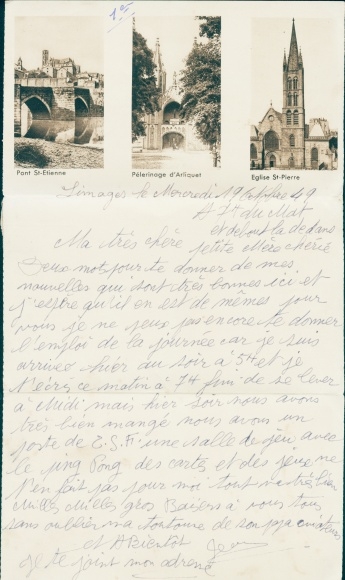 1er
Pont St-Etienne
Pélerinage d'Arliquet
Eglise St-Pierre
Limoges le Mercredi 19 Octobre 49
A 7h du Mat
et debout la dedans
Ma très chère petite Mère chérie
Deux mots pour te donner de mes
nouvelles qui sont très bonnes ici et
j'espère qu'il en est de mêmes pour
vous je ne peux pas encore te donner
l'emploi de la journée car je suis
arrivée hier au soir à 5H et je
t'écris ce matin à 7H fini de se lever
à Midi mais hier soir nous avons
très bien mangé nous avons un
poste de T.S.F une salle de jeu avec
le ping Pong des cartes et des jeux ne
t'en fait pas pour moi tout va très bien
Milles Milles gros Baisers à vous tous
sans oublier ma tontoune de son
et A Bientôt Jean
je te joint mon adresse